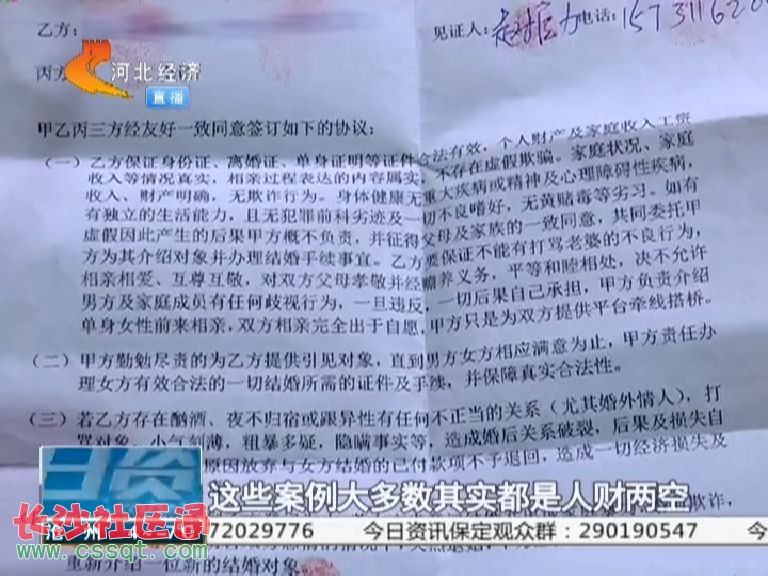 乙方:
见证人:
电话: 15731162
丙方
河北经济
直播
甲乙丙三方经友好一致同意签订如下的协议:
(一)乙方保证身份证、离婚证、单身证明等证件合法有效,个人财产及家庭收入工资
收入等情况真实,相亲过程表达的内容属实,不存在虚假欺骗。家庭状况、家庭
收入、财产明确,无欺诈行为。身体健康无重大疾病或精神及心理障碍性疾病,
有独立的生活能力,且无犯罪前科劣迹及一切不良嗜好,无黄赌毒等劣习。如有
虚假因此产生的后果甲方概不负责,并征得父母及家族的一致同意,共同委托甲
方为其介绍对象并办理结婚手续事宜。乙方要保证不能有打骂老婆的不良行为,
相亲相爱、互尊互敬,对双方父母孝敬并经赡养义务,平等和睦相处,决不允许
男方及家庭成员有任何歧视行为,一旦违反,一切后果自己承担,甲方负责介绍
单身女性前来相亲,双方相亲完全出于自愿,甲方只是为双方提供平台牵线搭桥。
(二)甲方勤勉尽责的为乙方提供引见对象,直到男方女方相应满意为止,甲方责任办
理女方有效合法的一切结婚所需的证件及手续,并保障真实合法性。
(三)若乙方存在酗酒、夜不归宿或跟异性有任何不正当的关系(尤其婚外情人),打
骂对象,小气刻薄,粗暴多疑,隐瞒事实等,造成婚后关系破裂,后果及损失自
原因放弃与女方结婚的已付款项不予退回,造成一切经济损失及
日资
这些案例大多数其实都是人财两空
诈,
长沙社区通
72029776 今日资讯保定观众群:290190547 今
www.cssqt.com
重新介绍一位新的结婚对象。